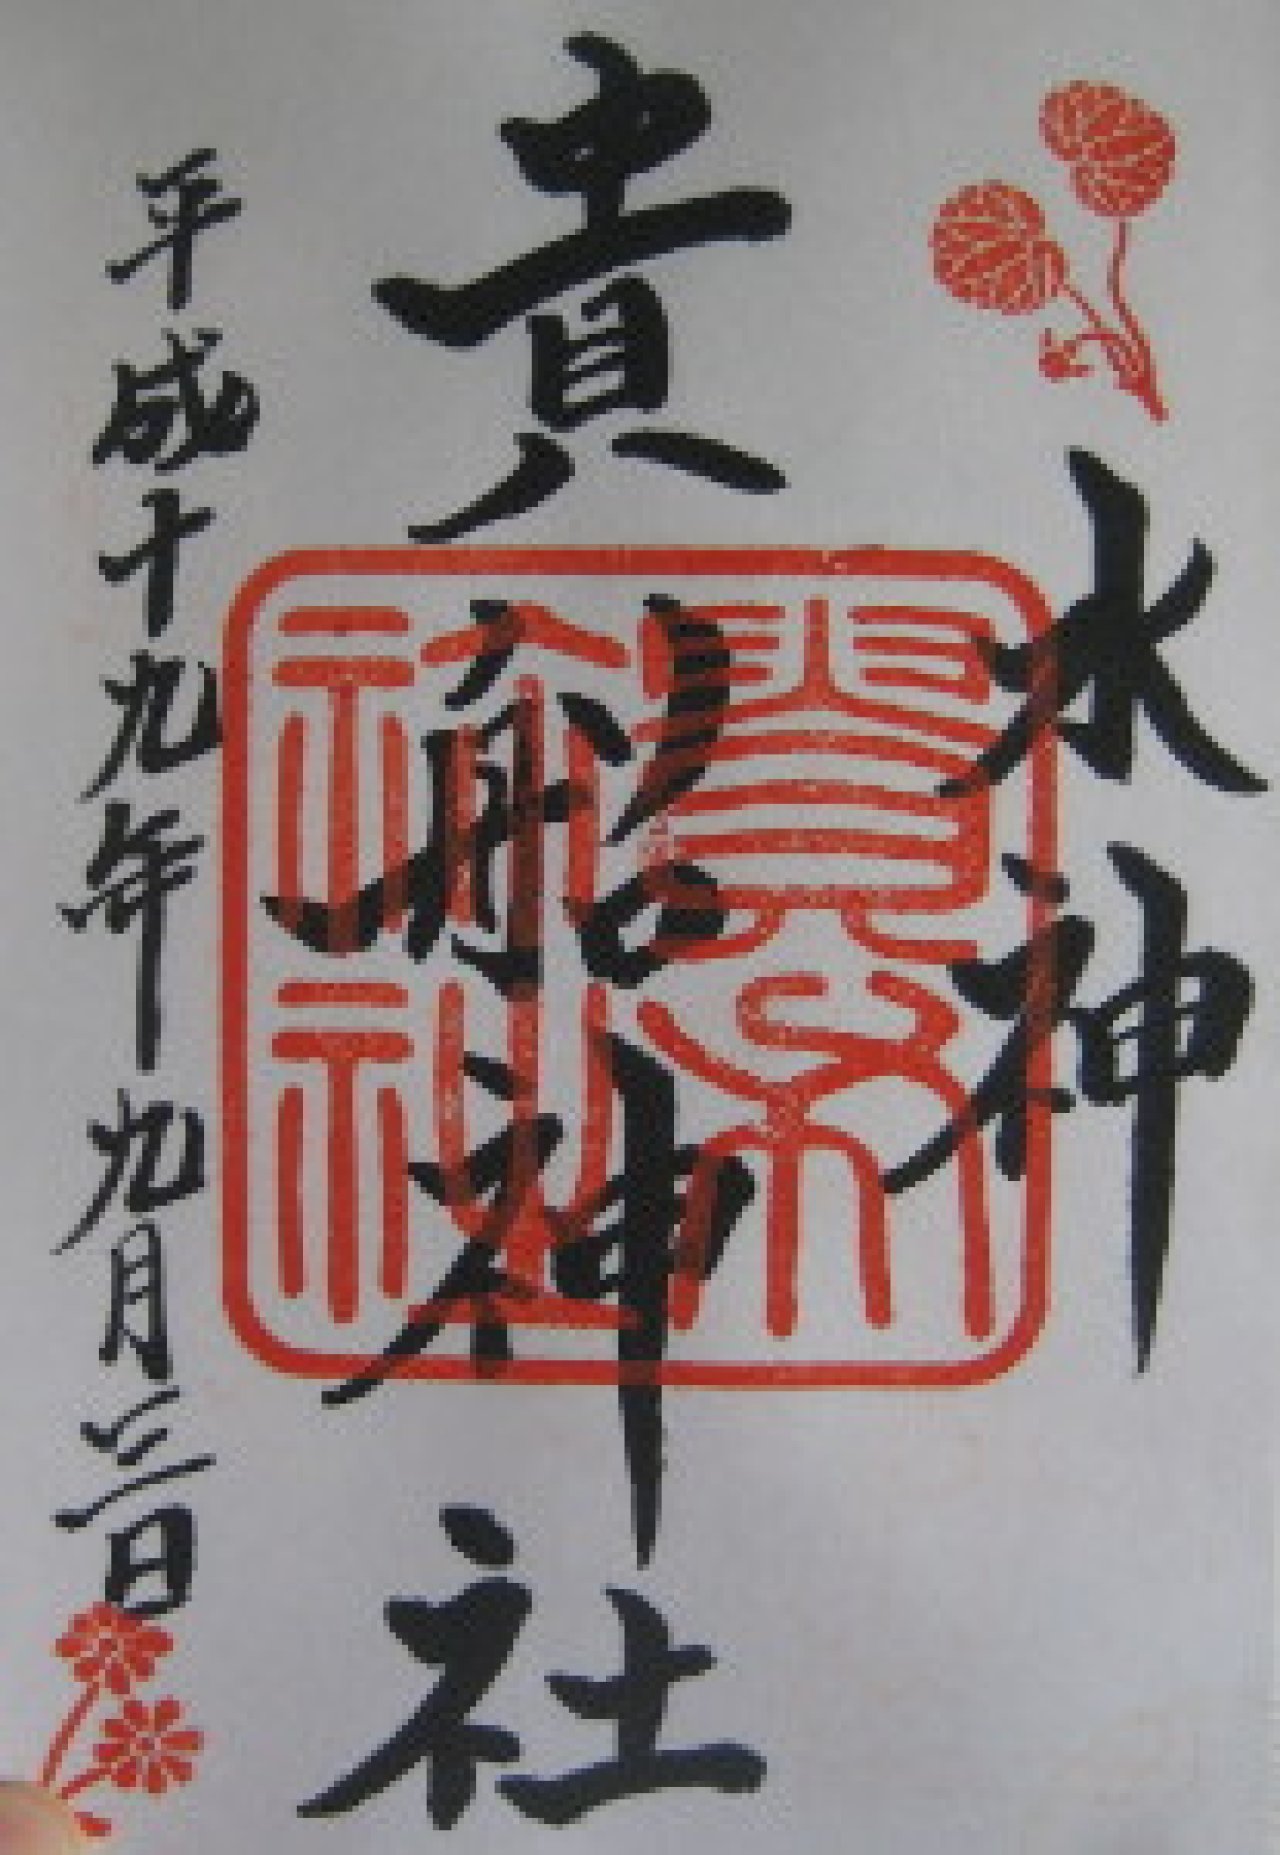 水神
貴船神社
貴布祢社
平成十九年九月三日